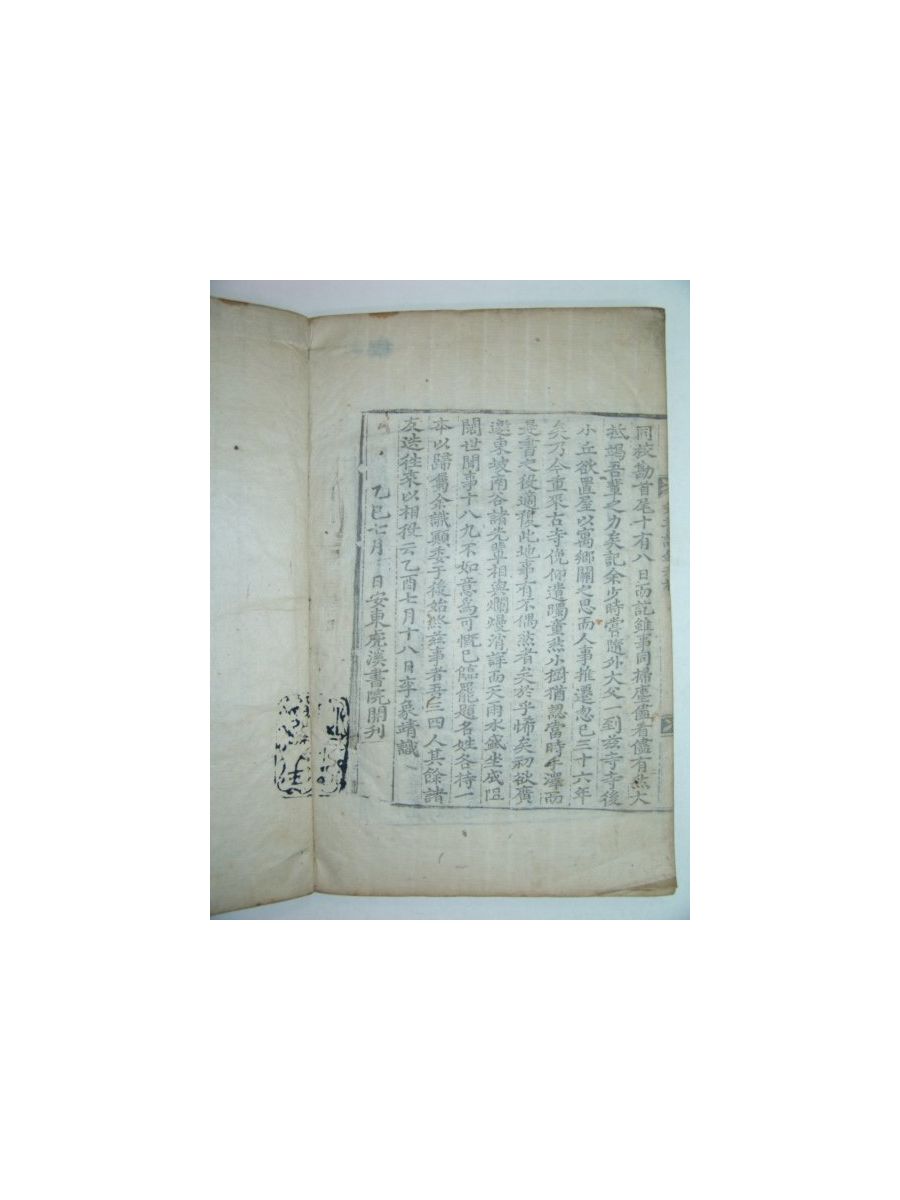 同校勘首尾十有八日而記雖事同掃塵儘看儘有然大
抵竭吾輩之力矣記余少時嘗隨外大父一到玆寺寺後
小丘欲置屋以寓鄉關之思而人事推遷忽已三十六年
矣乃今重來古寺俛仰遺躅童然小樹猶認當時手澤而
是書之役適複此地事有不偶然者矣於乎悕矣初欲廣
邀東坡南谷諸先輩相與爛熳消詳而天雨水盛坐成阻
闊世間事十八九不如意爲可慨已臨罷題名姓各持一
本以歸屬余識顚委于後始終玆事者吾三四人其餘諸
友迭往來以相役云乙酉七月十八日李象靖識
乙巳七月 日安東虎溪書院開刊